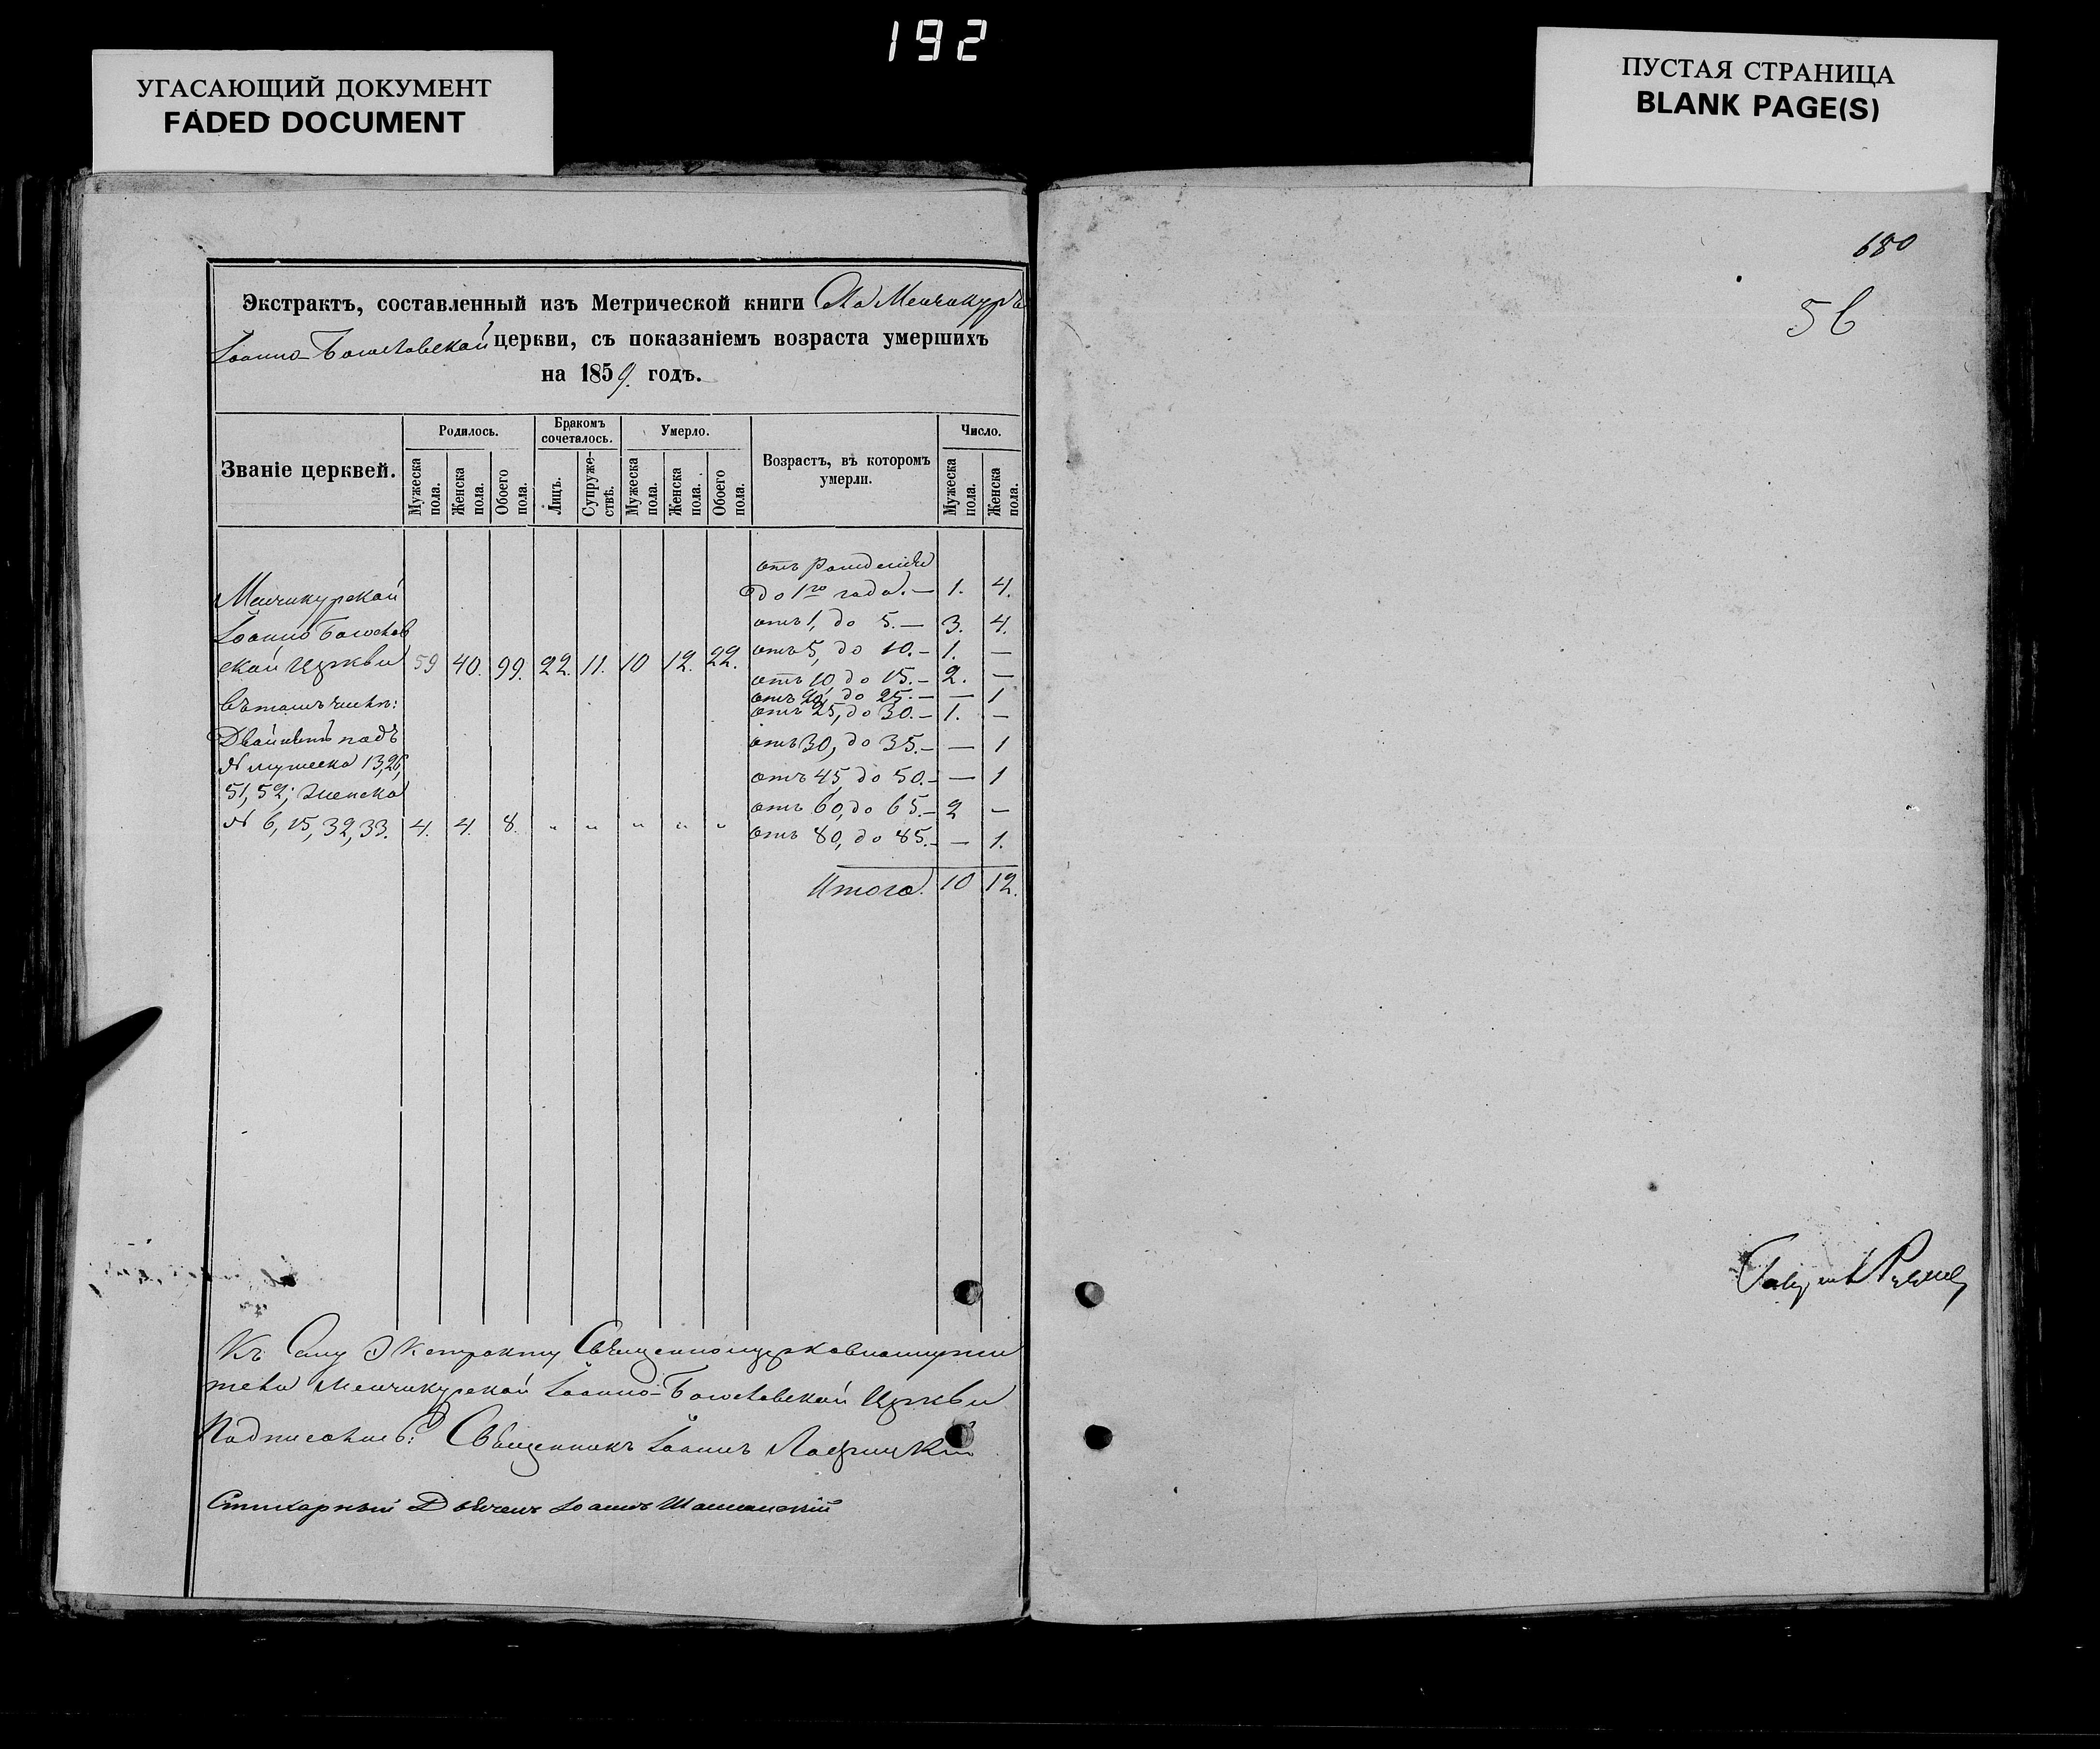 192
УГАСАЮЩИЙ ДОКУМЕНТ
FADED DOCUMENT
ПУСТАЯ СТРАНИЦА
BLANK PAGE(S)
Экстрактъ, составленный изъ Метрической книги Села Менчикуръ
Іоанно-Богословской церкви, съ показаніемъ возраста умершихъ
на 1859. годъ.
Званіе церквей.
Родилось.
Мужеска пола.
Женска пола.
Обоего пола.
Бракомъ
сочеталось.
Лицъ.
Супруже-ствъ.
Умерло.
Мужеска пола.
Женска пола.
Обоего пола.
Возрастъ, въ которомъ
умерли.
Число.
Мужеска пола.
Женска пола.
Менчикурской
Іоанно Богослов
ской Церкви 59 40. 99. 22. 11. 10 12. 22.
въ томъ числѣ:
Двойней подъ
№ мужеска 13, 26,
51, 52; женска
№ 6, 15, 32, 33. 4. 4. 8. " " " " "
отъ рожденія
до 1го года. — 1. 4.
отъ 1, до 5. — 3. 4.
отъ 5, до 10. — 1. —
отъ 10 до 15. — 2. —
отъ 20, до 25. — — 1
отъ 25, до 30. — 1. —
отъ 30, до 35. — — 1
отъ 45, до 50. — — 1
отъ 60, до 65. — 2 —
отъ 80, до 85. — — 1.
Итого. 10 12.
Къ Сему Экстракту Священноцерковнослужи
тели Менчикурской Іоанно-Богословской Церкви
Подписались: Священникъ Іоаннъ
Стихарный Дьячекъ Іоаннъ
680
56